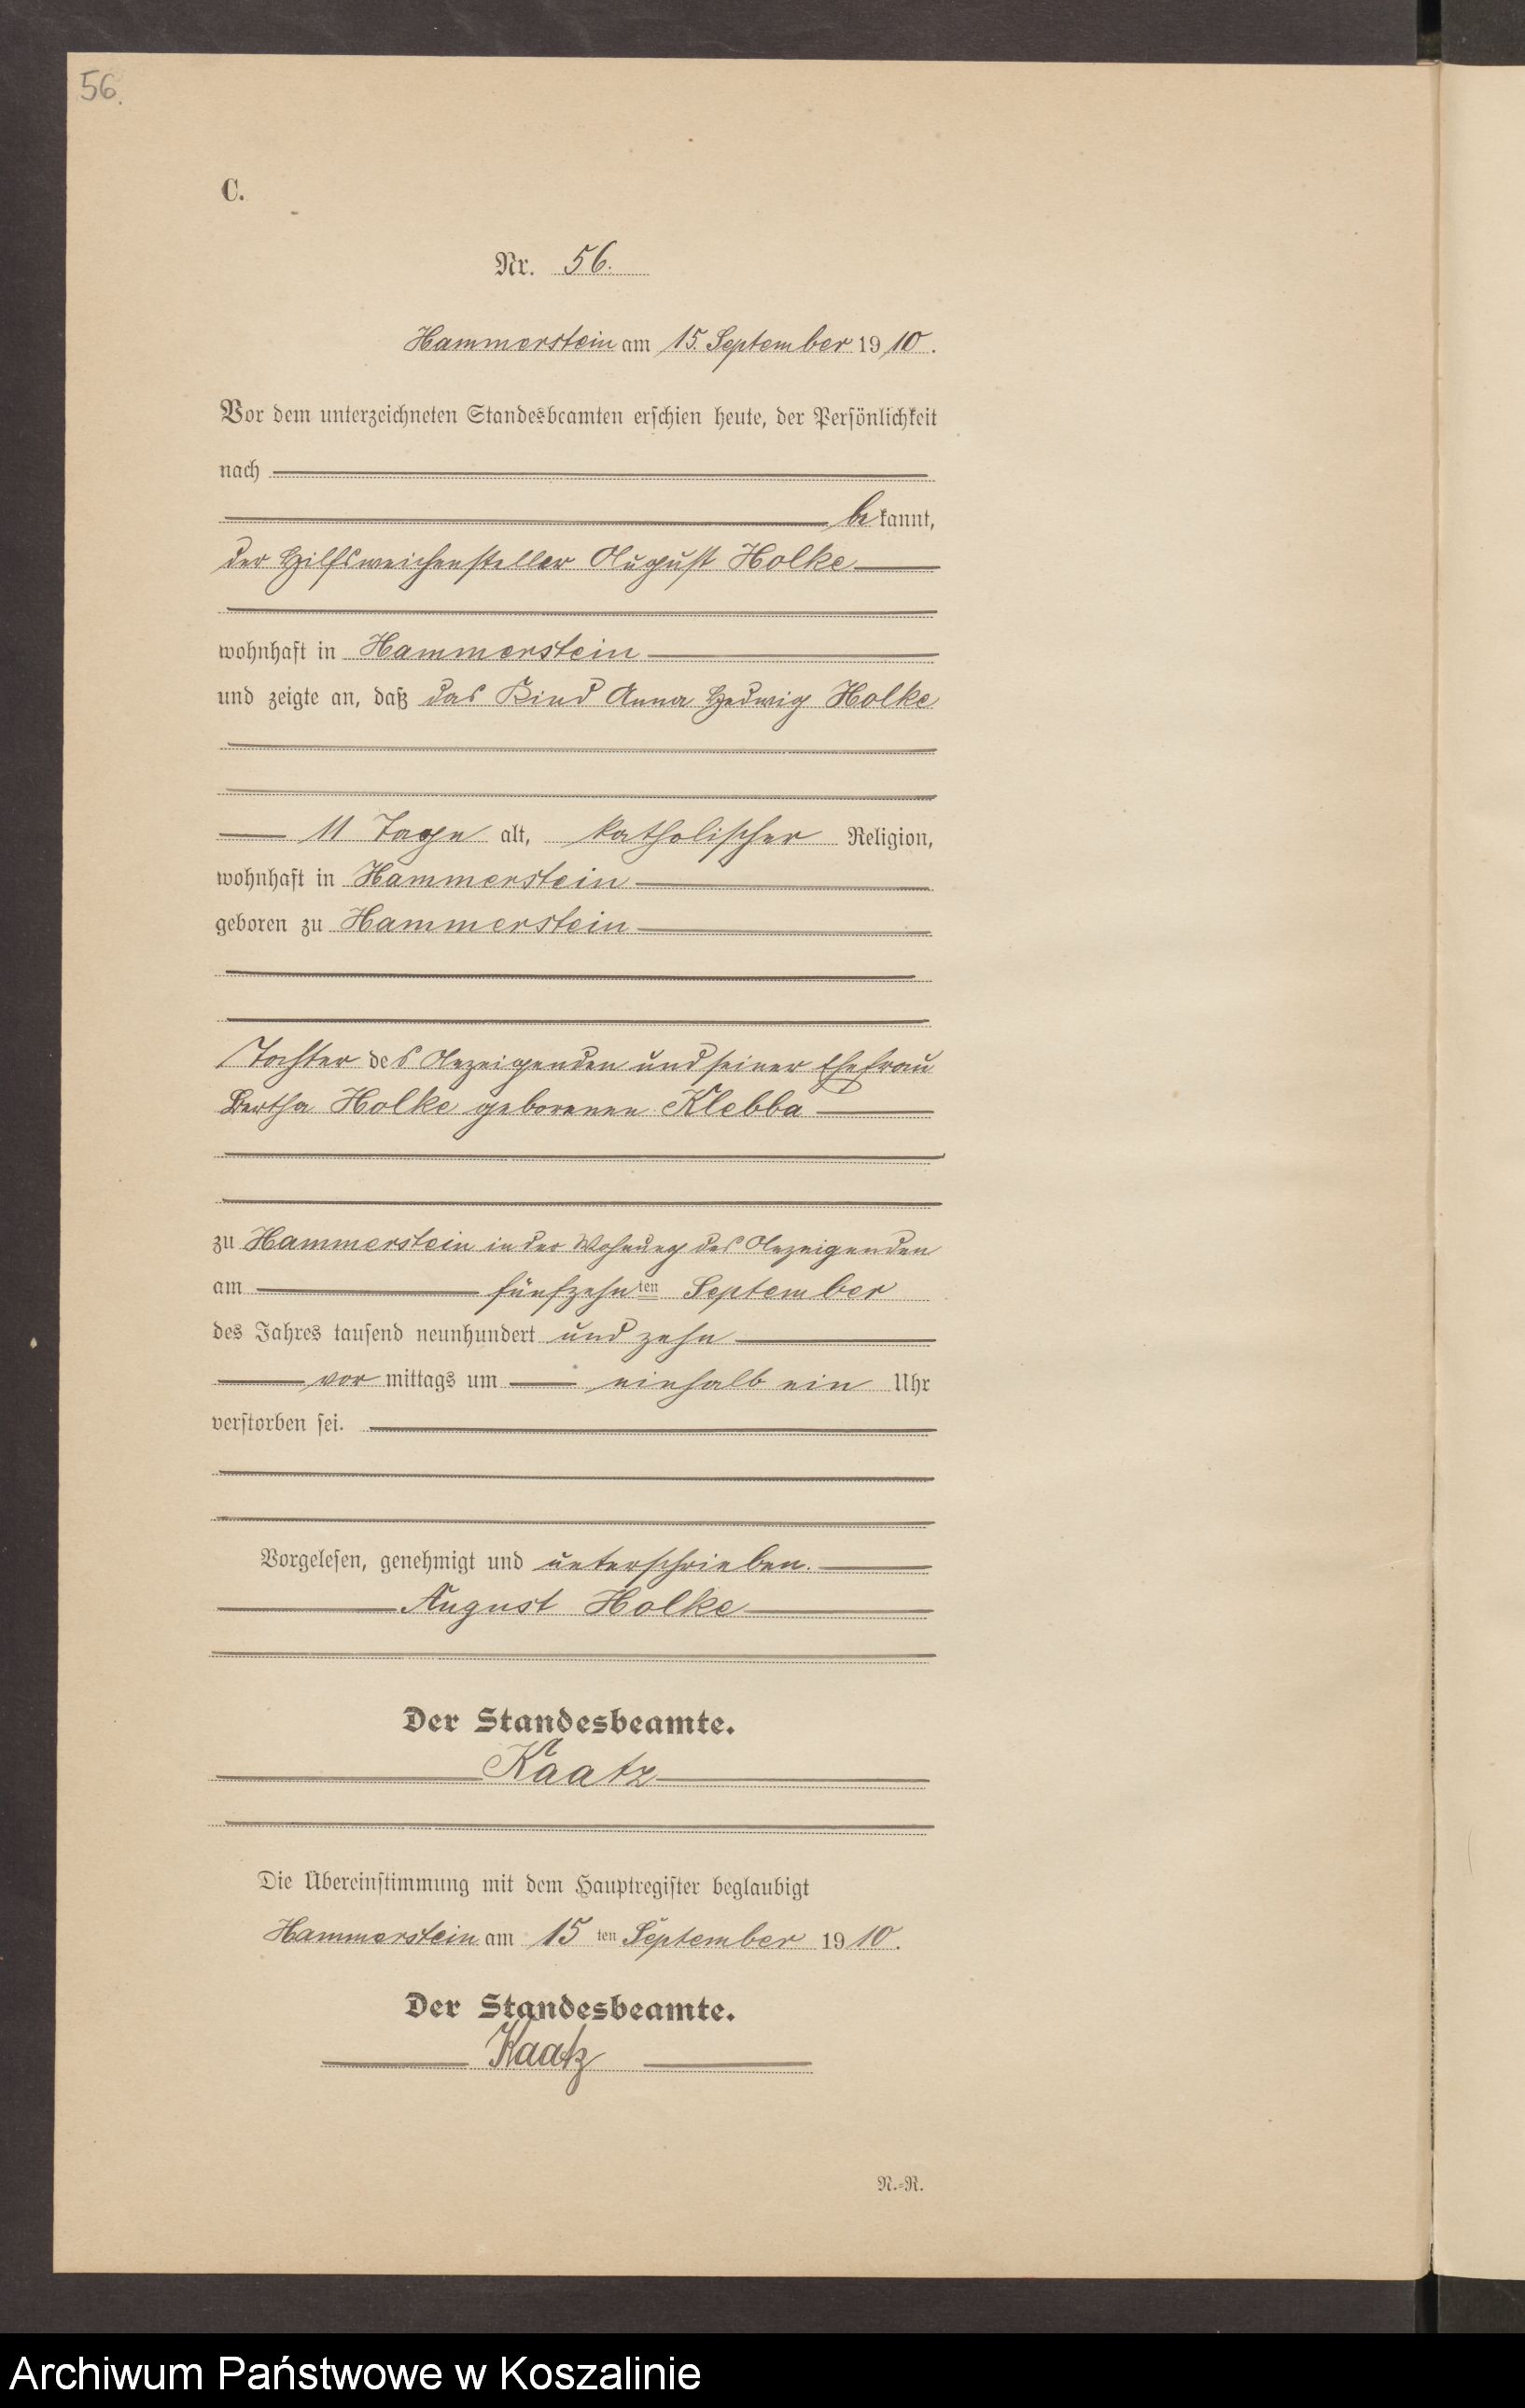 56.
C.
Nr. 56.
Hammerstein am 15. September 1910.
Vor dem unterzeichneten Standesbeamten erschien heute, der Persönlichkeit
nach
bekannt,
der Hilfsweichensteller August Holke
wohnhaft in Hammerstein
und zeigte an, daß das Kind Anna Hedwig Holke
11 Tage alt, katholischer Religion,
wohnhaft in Hammerstein
geboren zu Hammerstein
Tochter des Anzeigenden und seiner Ehefrau
Bertha Holke geborenen Klebba
zu Hammerstein in der Wohnung des Anzeigenden
am fünfzehnten September
des Jahres tausend neunhundert und zehn
vormittags um einhalb ein Uhr
verstorben sei.
Vorgelesen, genehmigt und unterschrieben.
August Holke
Der Standesbeamte.
Kaatz
Die Übereinstimmung mit dem Hauptregister beglaubigt
Hammerstein am 15ten September 1910.
Der Standesbeamte.
Kaatz
N.=R.
Archiwum Państwowe w Koszalinie